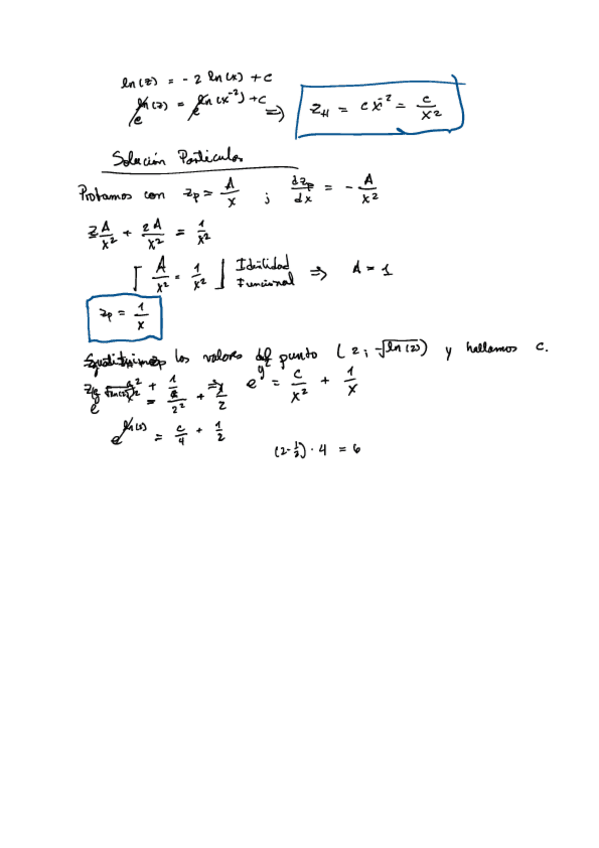 ln(z) = - 2 ln(x) + c
e^ln(z) = e^ln(x^-2) + c ⇒ z_H = c x^-2 = c/x^2
Solución Particular
Probamos con z_p = A/x ; dz_p/dx = - A/x^2
A/x^2 + 2A/x^2 = 1/x^2
[ A/x^2 = 1/x^2 ] Identidad Funcional ⇒ A = 1
z_p = 1/x
los valores del punto ( 2 ; √ln(2) ) y hallamos c.
e = /2^2 + /2 e^y = c/x^2 + 1/x
e^ln(2) = c/4 + 1/2
(2-1/2) · 4 = 6